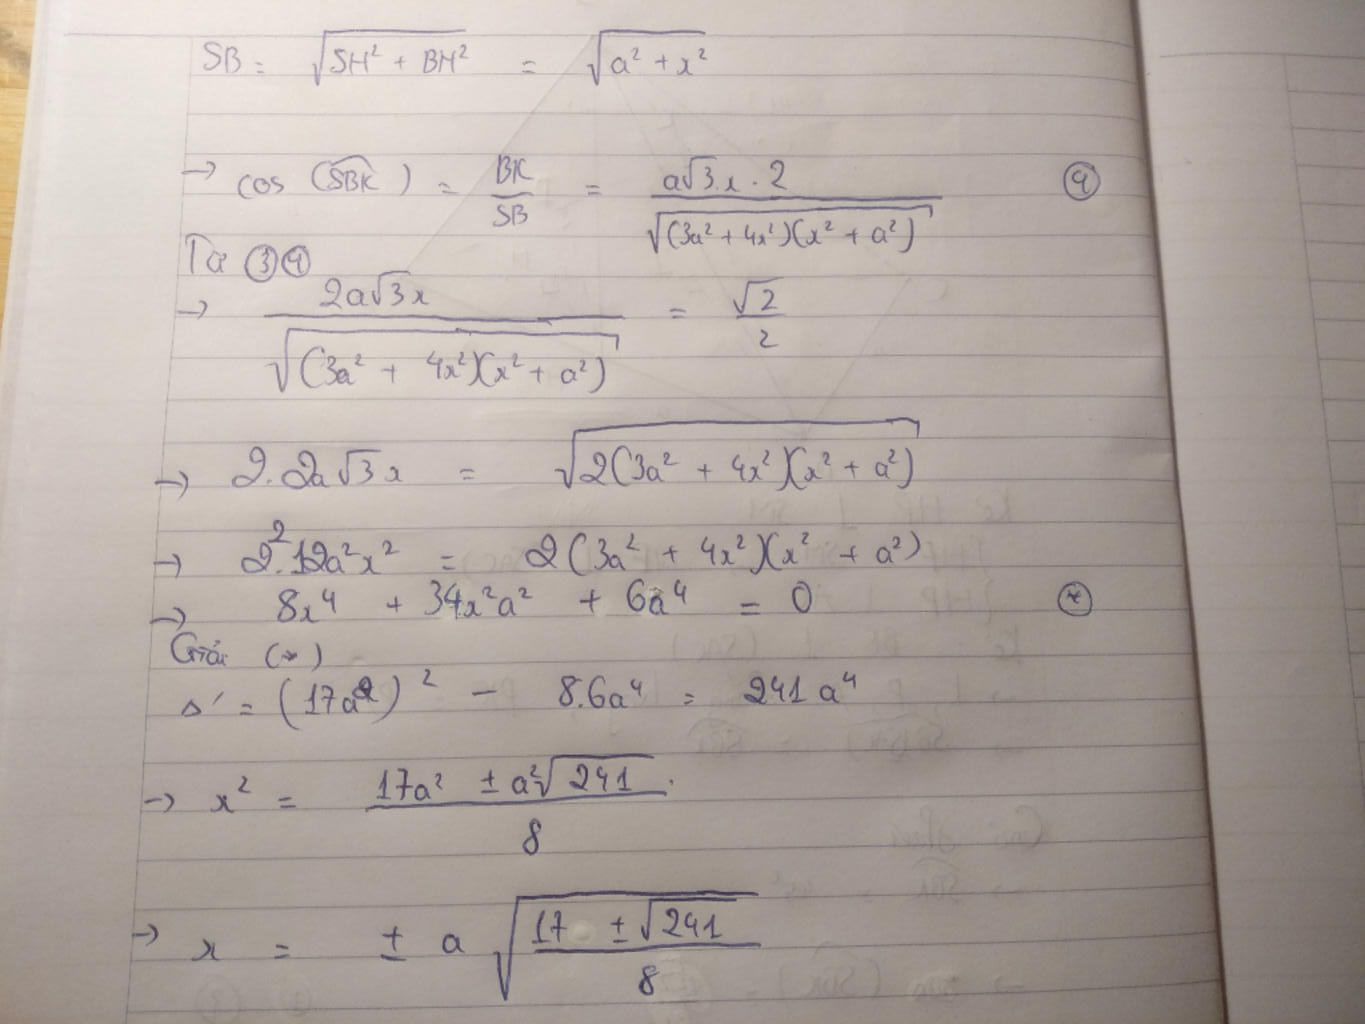 SB = √(SH² + BH²) = √(a² + x²)
→ cos (SBK) = BK/SB = a√3.x . 2 / √((3a² + 4x²)(x² + a²)) ④
Từ ③④
→ 2a√3x / √((3a² + 4x²)(x² + a²)) = √2/2
→ 2.2a√3x = √(2(3a² + 4x²)(x² + a²))
→ 2².12a²x² = 2(3a² + 4x²)(x² + a²)
→ 8x⁴ + 34x²a² + 6a⁴ = 0 (*)
Giải (*)
Δ' = (17a²)² - 8.6a⁴ = 241a⁴
→ x² = (17a² ± a²√241) / 8
→ x = ± a √((17 ± √241) / 8)